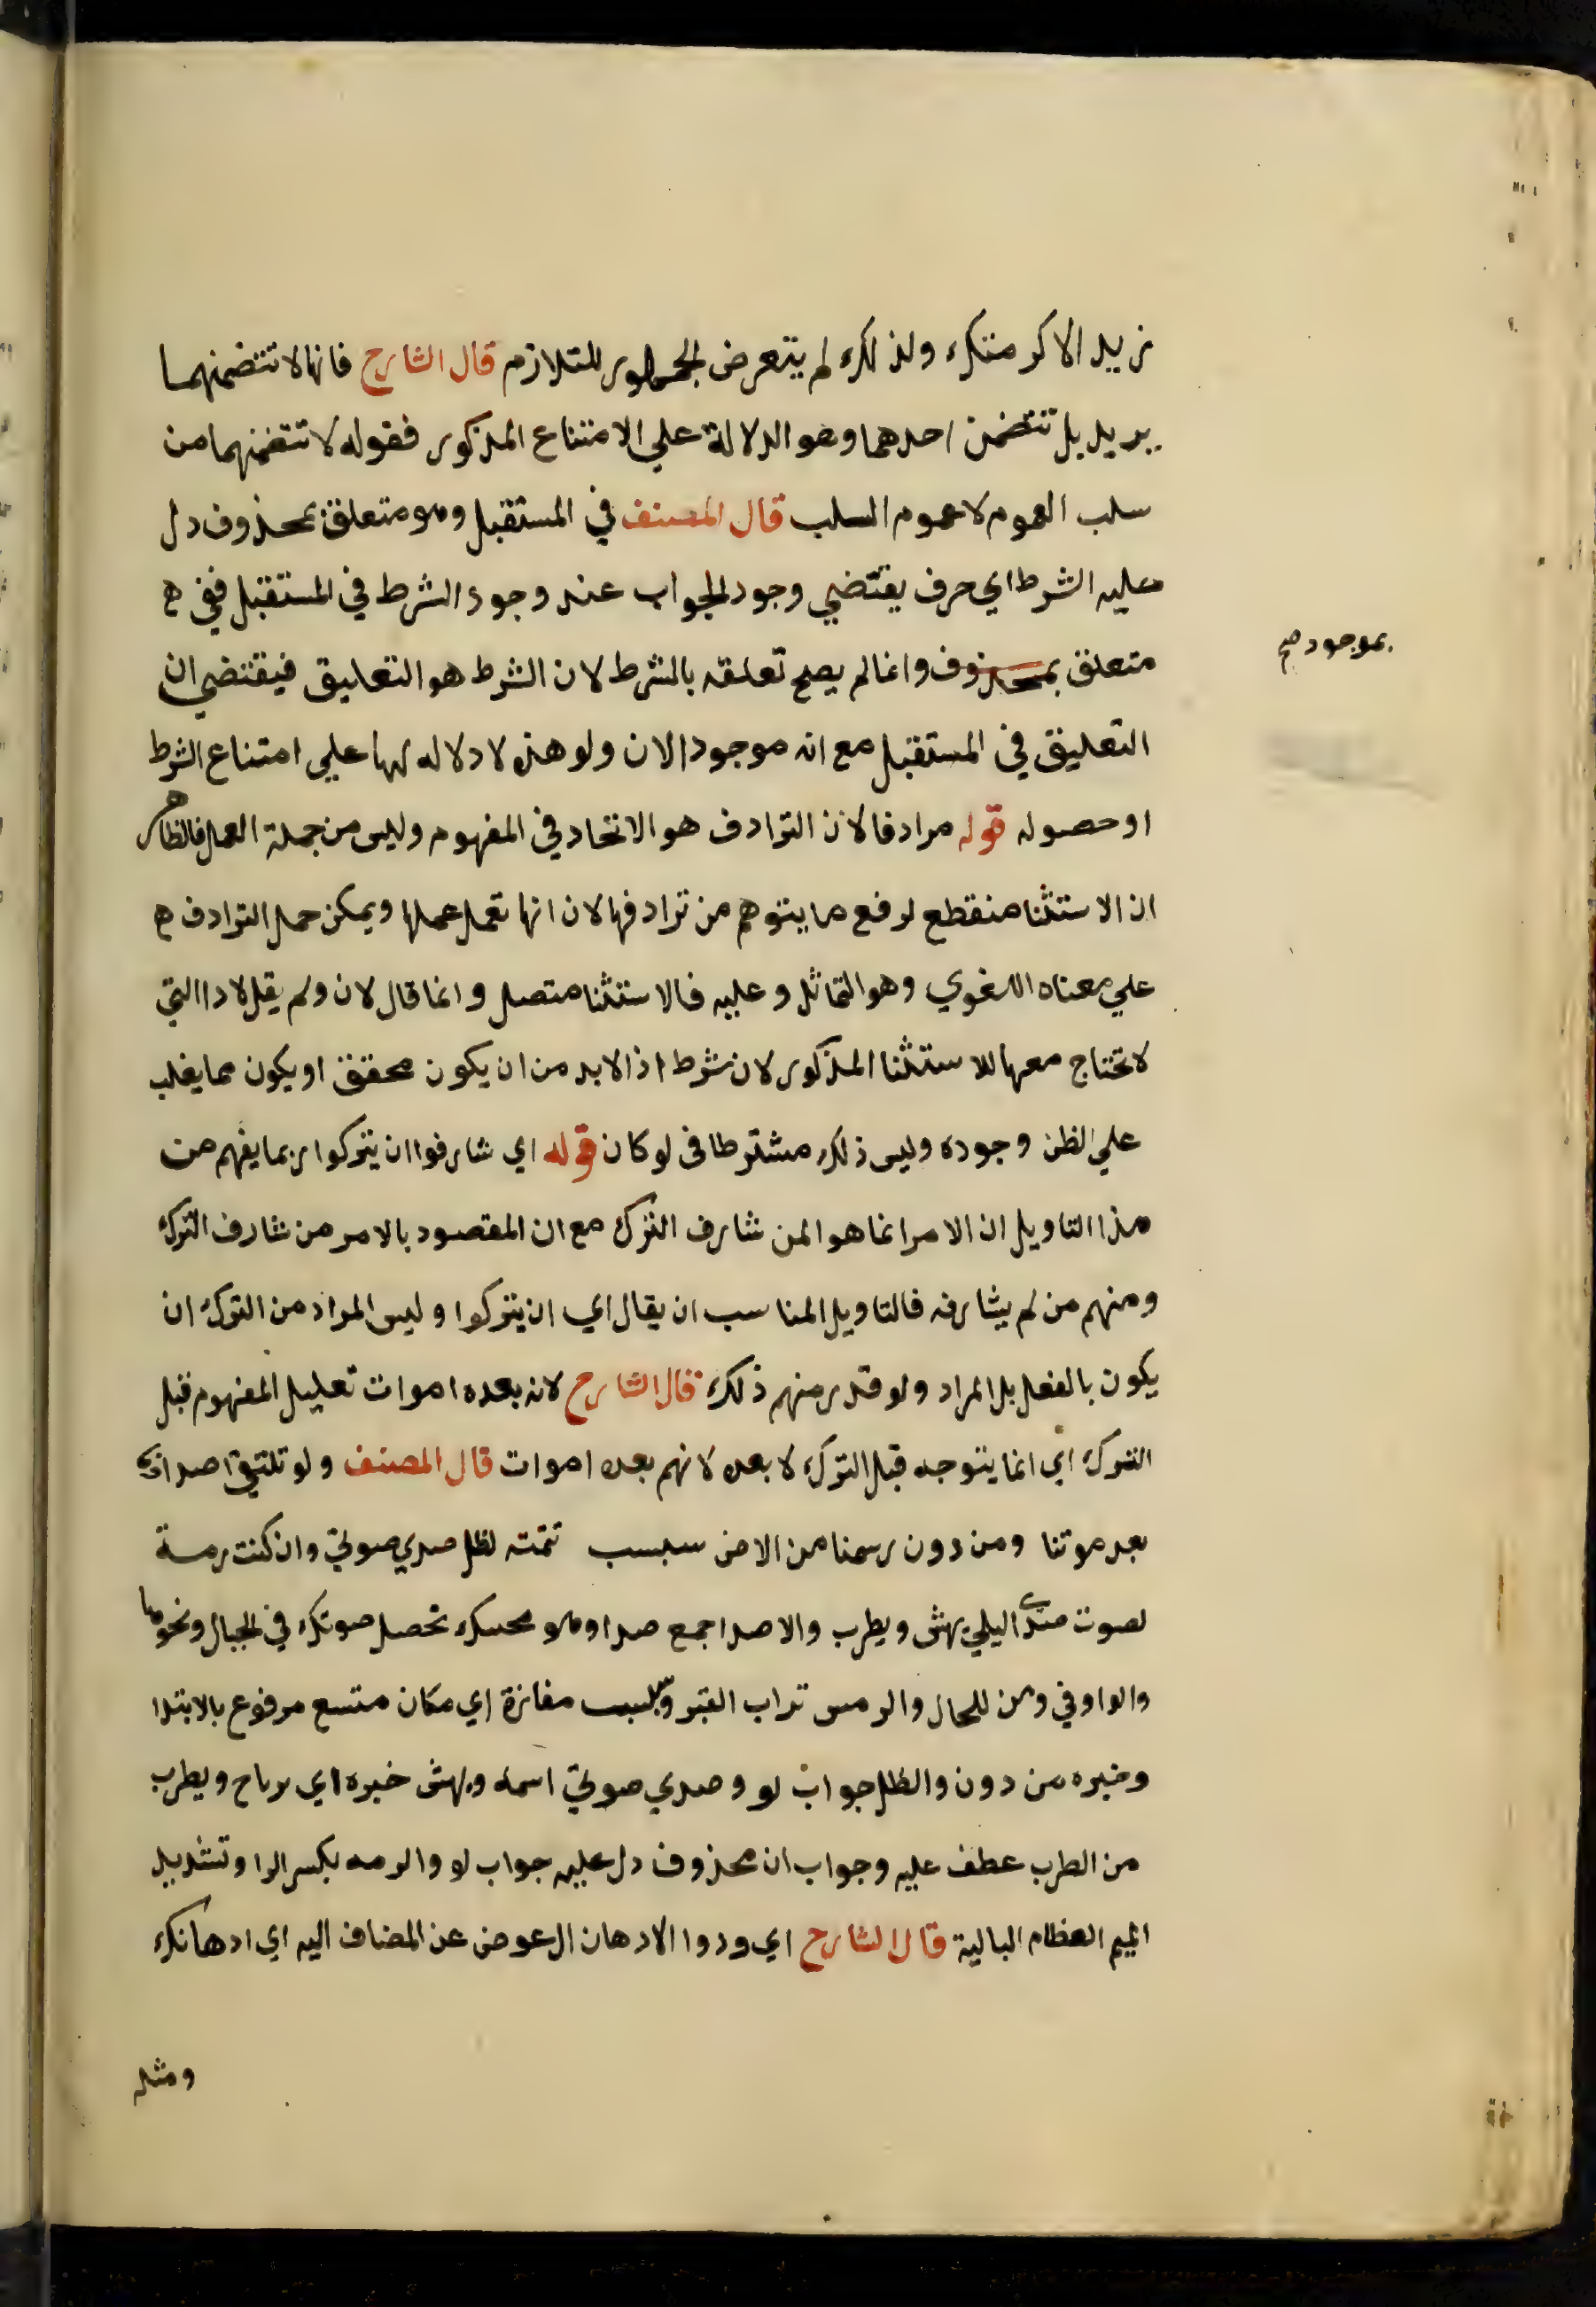 زيد الاكرمتك ولذلك لم يتعرض الجمهور للتلازم قال الشارح فانها لا تتضمنهما
يريد بل تتضمن احدهما وهو الدلالة علي الامتناع المذكور فقوله لا تتضمنهما من
سلب العموم لا عموم السلب قال المصنف في المستقبل وهو متعلق بمحذوف دل
عليه الشرط اي حرف يقتضي وجود الجواب عند وجود الشرط في المستقبل ففي
متعلق بمحذوف وانما لم يصح تعلقه بالشرط لان الشرط هو التعليق فيقتضي ان
بموجود صح
التعليق في المستقبل مع انه موجود الان ولو هذه لا دلاله لها علي امتناع الشرط
او حصوله قوله مرادفا لان الترادف هو الاتحاد في المفهوم وليس من جملة العمل فالظاهر
ان الاستثنا منقطع لرفع ما يتوهم من ترادفها لان انها تعمل عملها ويمكن حمل الترادف
علي معناه اللغوي وهو التماثل وعليه فالاستثنا متصل وانما قال لان ولم يقل لاذا التي
لا تحتاج معها للاستثنا المذكور لان شرط اذا لابد من ان يكون محقق او يكون مما يغلب
علي الظن وجوده وليس ذلك مشترطا في لو كان قوله اي شارفوا ان يتركوا ربما يفهم من
هذا التاويل ان الامر انما هو لمن شارف الترك مع ان المقصود بالامر من شارف الترك
ومنهم من لم يشارفه فالتاويل المناسب ان يقال اي ان يتركوا وليس المراد من الترك ان
يكون بالفعل بل المراد ولو قدر منهم ذلك قال الشارح لانه بعده اموات تعليل المفهوم قبل
الترك اي انما يتوجه قبل الترك لا بعده لانهم بعده اموات قال المصنف ولو تلتقي اصداؤنا
بعد موتنا ومن دون رمسنا من الارض سبسب تتمته لظل صدي صوتي وان كنت رمة
لصوت صدي ليلي يهش ويطرب والاصدا جمع صدا وهو تحصل صوتك في الجبال ونحوها
والواو في ومن للحال والرمس تراب القبر وسبسب مفازة اي مكان متسع مرفوع بالابتدا
وخبره من دون والظل جواب لو وصدي صوتي اسمه ويهش خبره اي يرتاح ويطرب
من الطرب عطف عليه وجواب ان محذوف دل عليه جواب لو والرمه بكسر الرا وتشديد
الميم العظام البالية قال الشارح اي ودوا الادهان ال عوض عن المضاف اليه اي ادهانك
ومثله